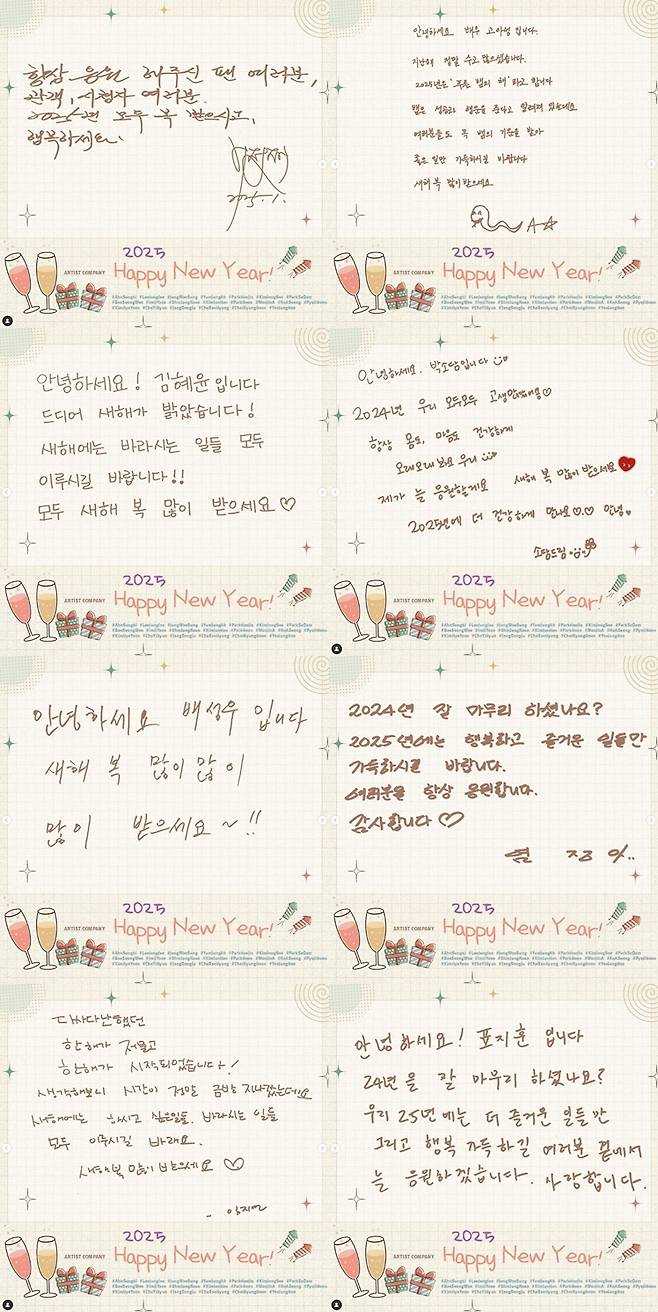 항상 응원 해주신 팬 여러분,
관객, 시청자 여러분.
2025년 모두 복 받으시고,
행복하세요.
2025. 1.
2025
ARTIST COMPANY
Happy New Year!
안녕하세요 배우 고아성 입니다.
지난해 정말 수고 많으셨습니다.
2025년은 '푸른 뱀의 해'라고 합니다
뱀은 성공과 행운을 준다고 알려져 있는데요
여러분들도 꼭 뱀의 기운을 받아
좋은 일만 가득하시길 바랍니다
새해 복 많이 받으세요
2025
ARTIST COMPANY
Happy New Year!
안녕하세요! 김혜윤입니다
드디어 새해가 밝았습니다!
새해에는 바라시는 일들 모두
이루시길 바랍니다!!
모두 새해 복 많이 받으세요♡
2025
ARTIST COMPANY
Happy New Year!
안녕하세요. 박소담입니다
2024년 우리 모두모두 고생많았어용♡
항상 몸도, 마음도 건강하게
오래오래 봐요 우리
제가 늘 응원할게요 새해 복 많이 받으세요
2025년에 더 건강하게 만나요♡.♡ 안녕
소담드림
2025
ARTIST COMPANY
Happy New Year!
안녕하세요 배성우 입니다
새해 복 많이 많이
많이 받으세요~!!
2025
ARTIST COMPANY
Happy New Year!
2024년 잘 마무리 하셨나요?
2025년에는 행복하고 즐거운 일들만
가득하시길 바랍니다.
여러분을 항상 응원합니다.
감사합니다♡
2025
ARTIST COMPANY
Happy New Year!
다사다난했던
한해가 저물고
한해가 시작되었습니다!
생각해보니 시간이 정말 금방 지나갔는데요
새해에는 하시고 싶은일들, 바라시는 일들
모두 이루시길 바래요.
새해복 많이 받으세요♡
- 임지연
2025
ARTIST COMPANY
Happy New Year!
안녕하세요! 표지훈 입니다
24년을 잘 마무리 하셨나요?
우리 25년에는 더 즐거운 일들만
그리고 행복 가득하길 여러분 곁에서
늘 응원하겠습니다. 사랑합니다.
2025
ARTIST COMPANY
Happy New Year!